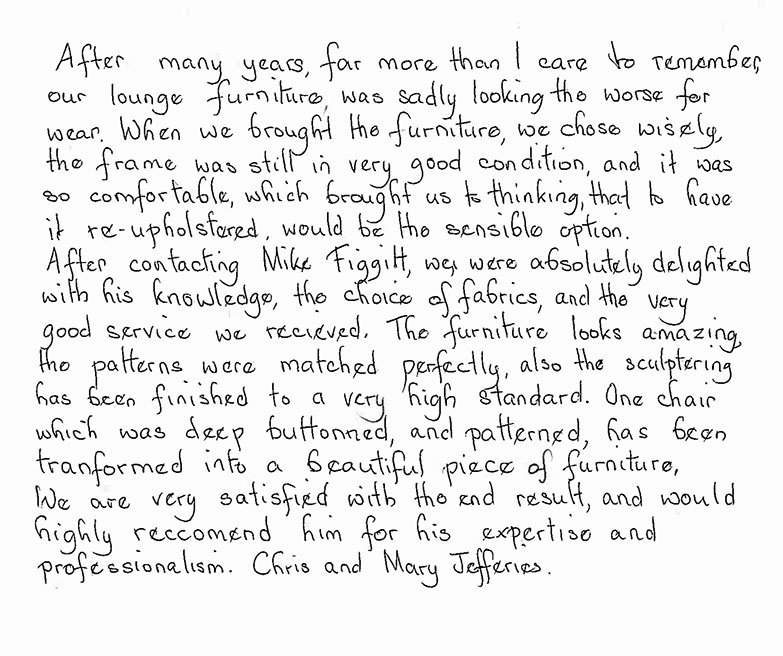 After many years, far more than I care to remember,
our lounge furniture, was sadly looking the worse for
wear. When we brought the furniture, we chose wisely,
the frame was still in very good condition, and it was
so comfortable, which brought us to thinking, that to have
it re-upholstered, would be the sensible option.
After contacting Mike Figgitt, we, were absolutely delighted
with his knowledge, the choice of fabrics, and the very
good service we recieved. The furniture looks amazing,
the patterns were matched perfectly, also the sculptering
has been finished to a very high standard. One chair
which was deep buttonned, and patterned, has been
tranformed into a beautiful piece of furniture,
We are very satisfied with the end result, and would
highly reccomend him for his expertise and
professionalism. Chris and Mary Jefferies.